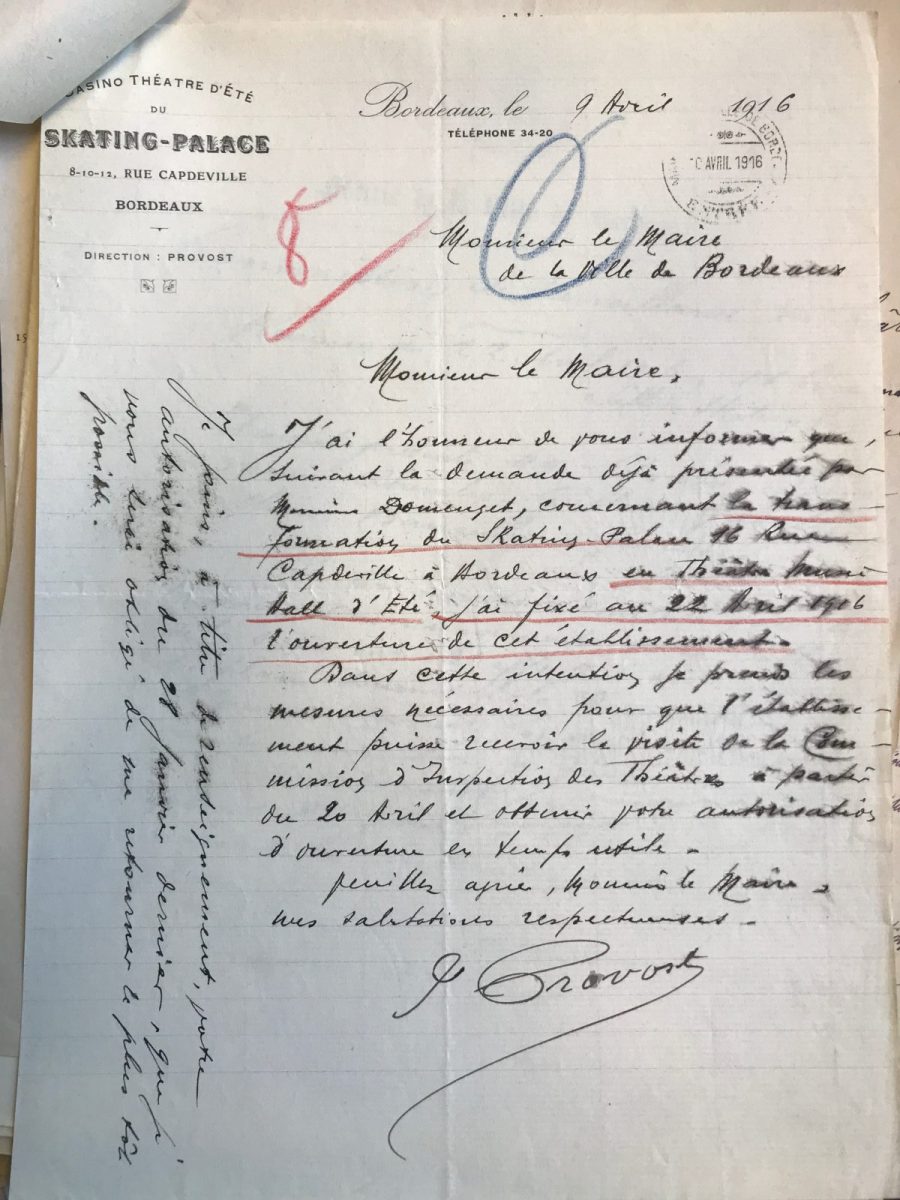 CASINO THÉATRE D'ÉTÉ
DU
SKATING-PALACE
8-10-12, RUE CAPDEVILLE
BORDEAUX
DIRECTION : PROVOST
Bordeaux, le 9 Avril 1916
TÉLÉPHONE 34-20
DE BORDE
AVRIL 1916
8
Monsieur le Maire
de la Ville de Bordeaux
Monsieur le Maire,
J'ai l'honneur de vous informer que,
suivant la demande déjà présentée par
Monsieur Domenget, concernant la trans-
formation du Skating-Palace 16 Rue
Capdeville à Bordeaux en Théâtre Music
Hall d'Eté, j'ai fixé au 22 Avril 1916
l'ouverture de cet établissement.
Dans cette intention je prends les
mesures nécessaires pour que l'établisse-
ment puisse recevoir la visite de la Com-
mission d'Inspection des Théâtres à partir
du 20 Avril et obtenir votre autorisation
d'ouverture en temps utile.
Veuillez agréer, Monsieur le Maire,
mes salutations respectueuses.
Provost
Je joins, à titre de renseignement, votre
autorisation du 28 Janvier dernier, que je
vous serai obligé de me retourner le plus tôt
possible.